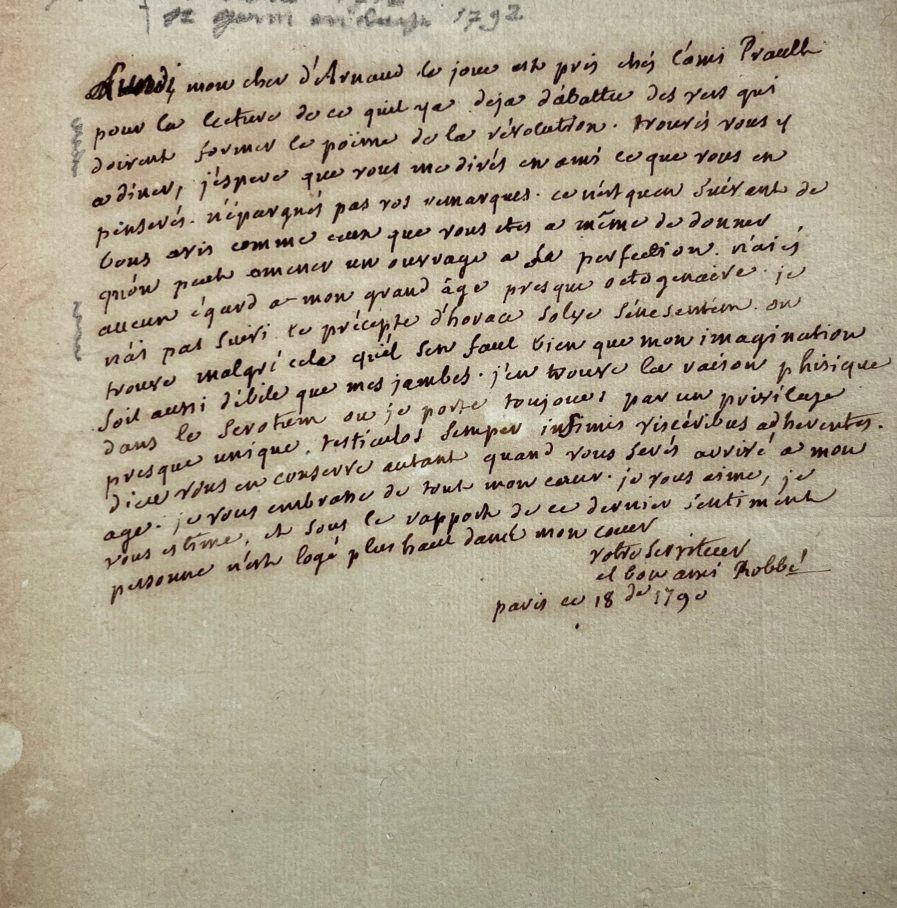 St germ en laye 1792
Lundi mon cher d'Arnaud le jour est pris chés l'ami Prault
pour la lecture de ce qu'il y a deja d'abattu des vers qui
doivent former le poëme de la révolution. trouvés vous y
a diner, j'espere que vous me dirés en ami ce que vous en
penserés. n'épargnés pas vos remarques. ce n'est qu'en suivant de
bons avis comme ceux que vous etes a même de donner
qu'on peut amener un ouvrage a sa perfection. n'aiés
aucun égard a mon grand âge presque octogenaire. je
n'ai pas suivi le précepte d'horace solve senescentem. on
trouve malgré cela qu'il s'en faut bien que mon imagination
soit aussi débile que mes jambes. j'en trouve la raison phisique
dans le scrotum ou je porte toujours par un privilege
presque unique, testiculos semper infimis visceribus adherentes.
dieu vous en conserve autant quand vous serés arrivé a mon
age. je vous embrasse de tout mon cœur. je vous aime, je
vous estime, et sous le rapport de ce dernier sentiment
personne n'est logé plus haut dans mon cœur
votre serviteur
et bon ami Robbé
paris ce 18 de 1790